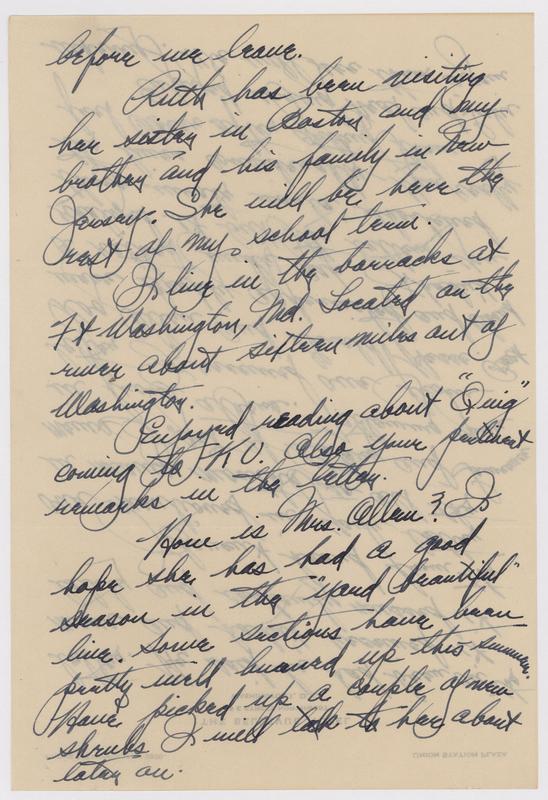 before we leave.
Ruth has been visiting
her sister in Boston and my
brother and his family in New
Jersey. She will be here the
rest of my school term.
I live in the barracks at
Ft Washington, Md. Located on the
river about sixteen miles out of
Washington.
Enjoyed reading about "Quig"
coming to KU. Also your pertinent
remarks in the letter.
How is Mrs. Allen? I
hope she has had a good
season in the "yard beautiful"
line. Some sections have been
pretty well burned up this summer.
Have picked up a couple of new
shrubs I will talk to her about
later on.
UNION STATION PLAZA